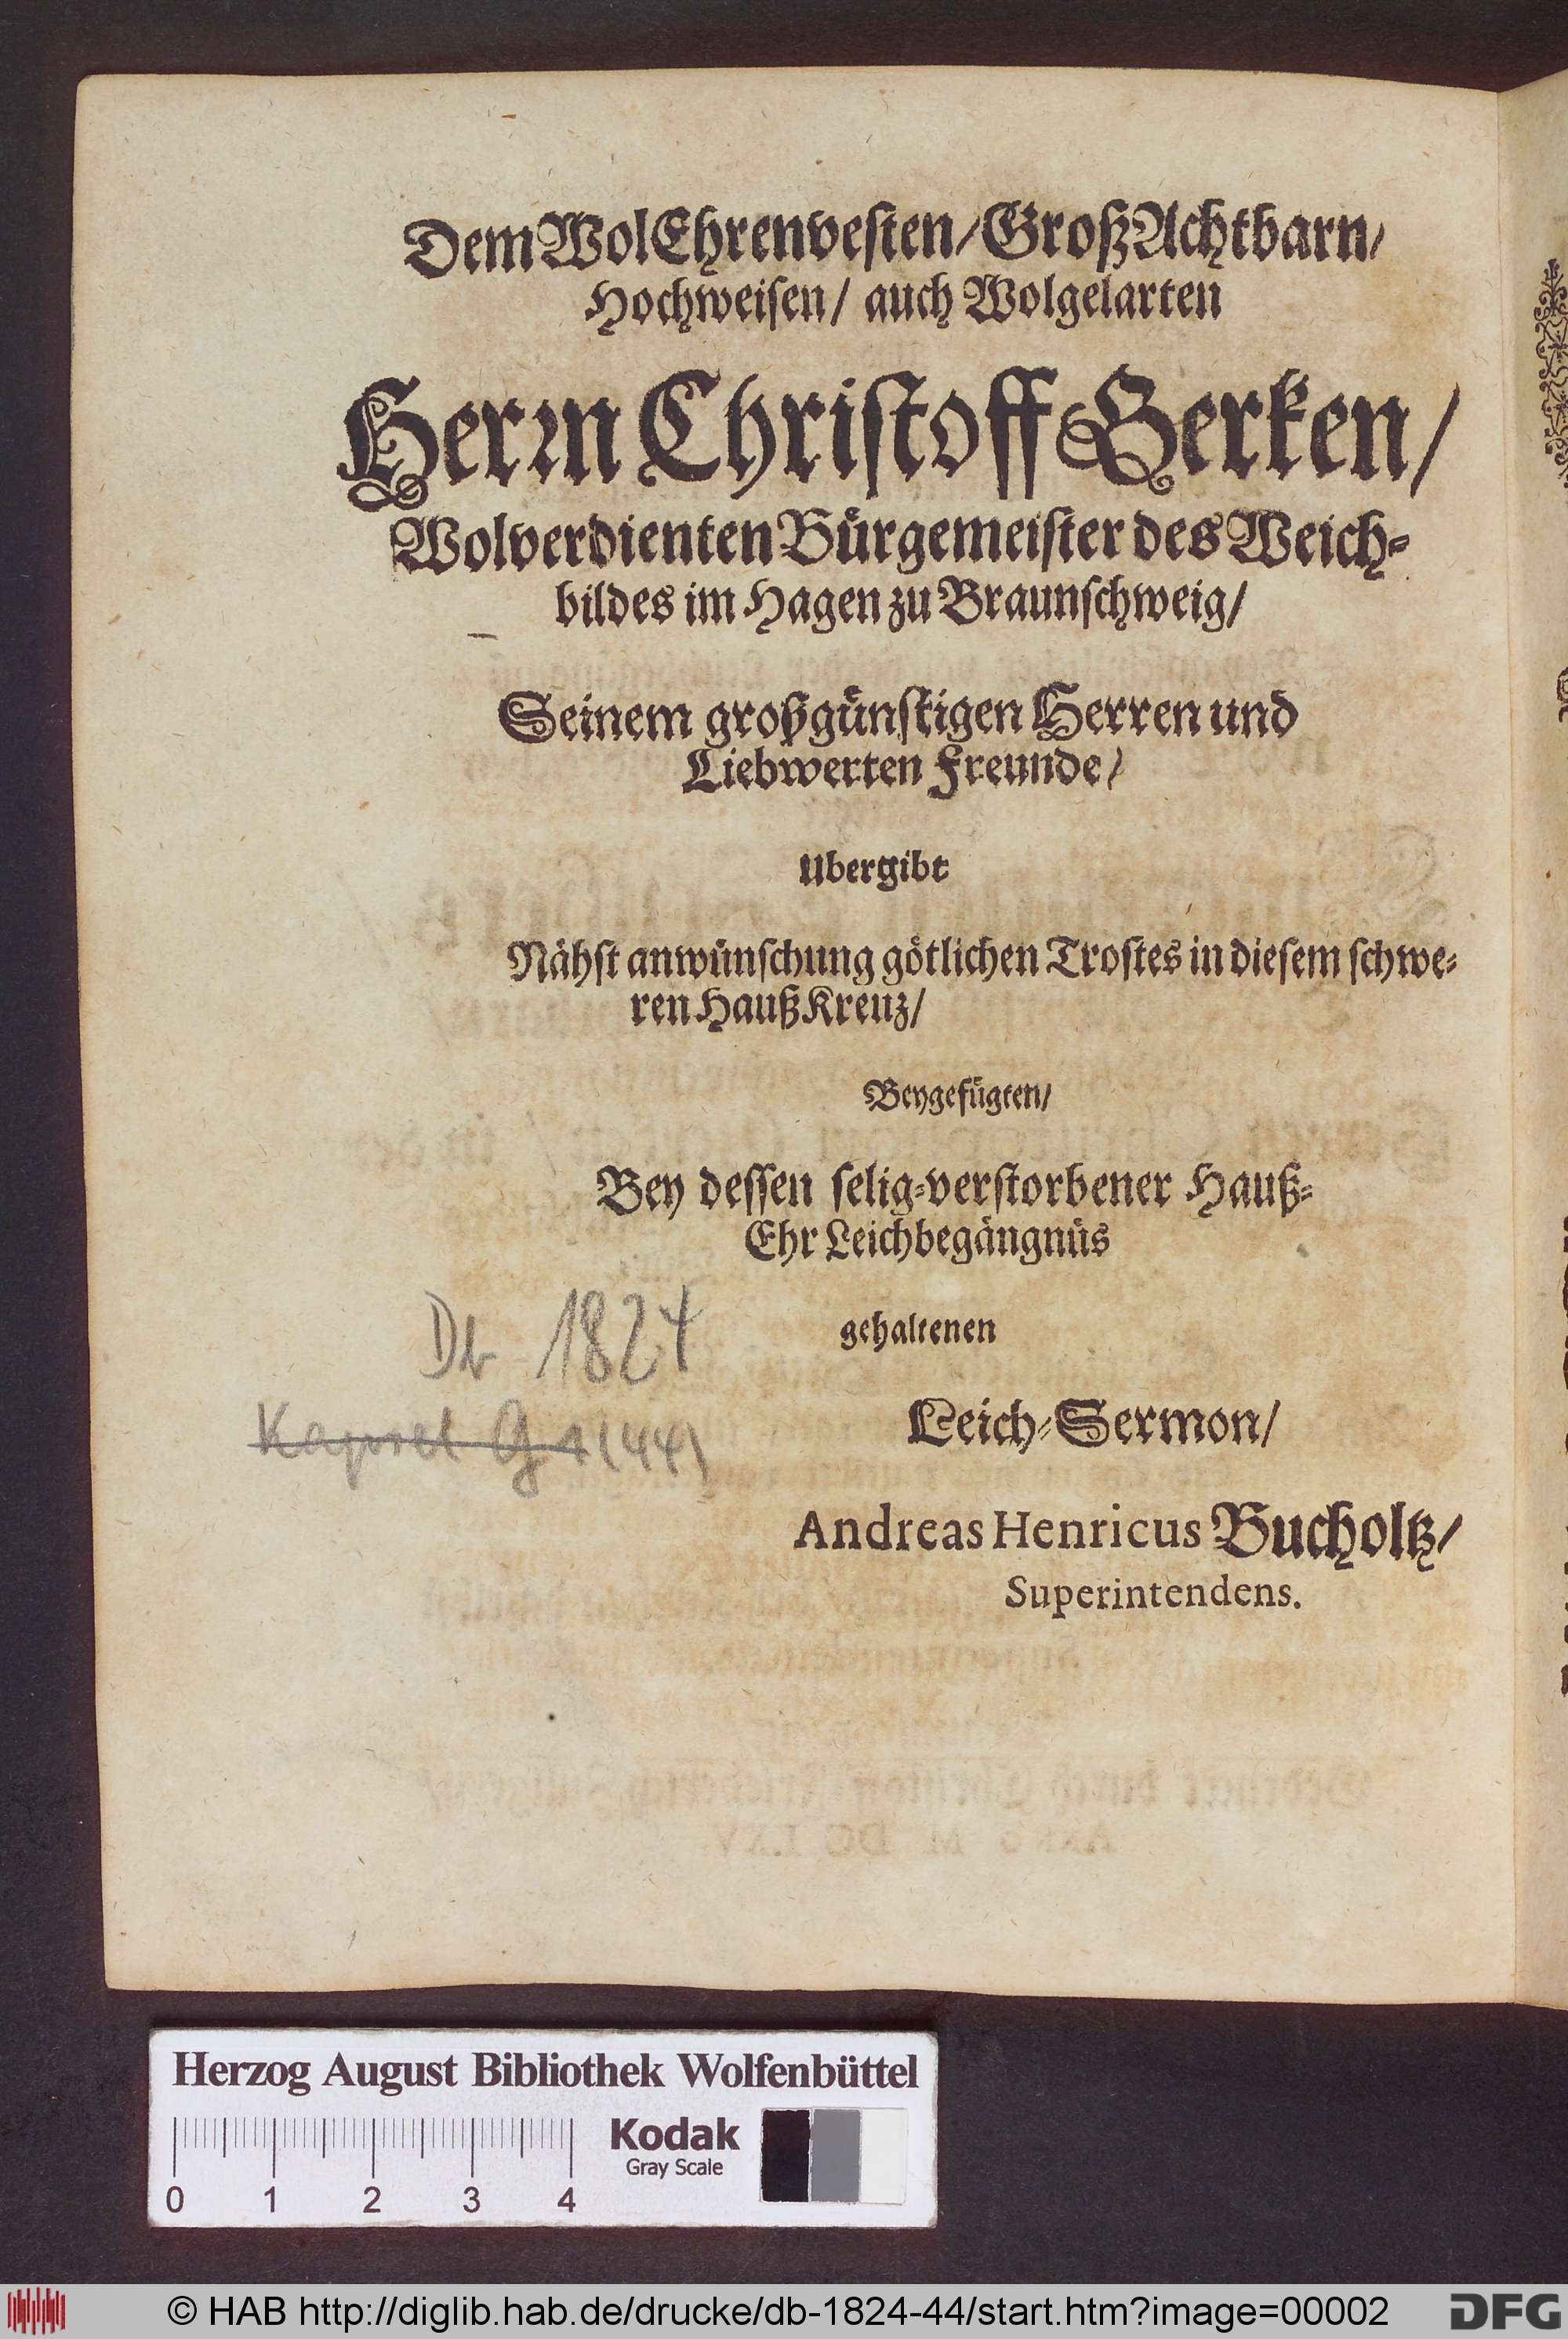 Dem WolEhrenvesten/ GroßAchtbarn/
Hochweisen/ auch Wolgelarten
Herrn Christoff Gerken/
Wolverdienten Bürgemeister des Weich-
bildes im Hagen zu Braunschweig/
Seinem großgünstigen Herren und
Liebwerten Freunde/
Ubergibt
Nähst anwünschung götlichen Trostes in diesem schwe-
ren HaußKreuz/
Beygefügten/
Bey dessen selig-verstorbener Hauß-
Ehr Leichbegängnüs
gehaltenen
Db 1824
Leich-Sermon/
Kapsel G 1 (44)
Andreas Henricus Bucholtz/
Superintendens.
Herzog August Bibliothek Wolfenbüttel
Kodak
Gray Scale
0 1 2 3 4
© HAB http://diglib.hab.de/drucke/db-1824-44/start.htm?image=00002
DFG